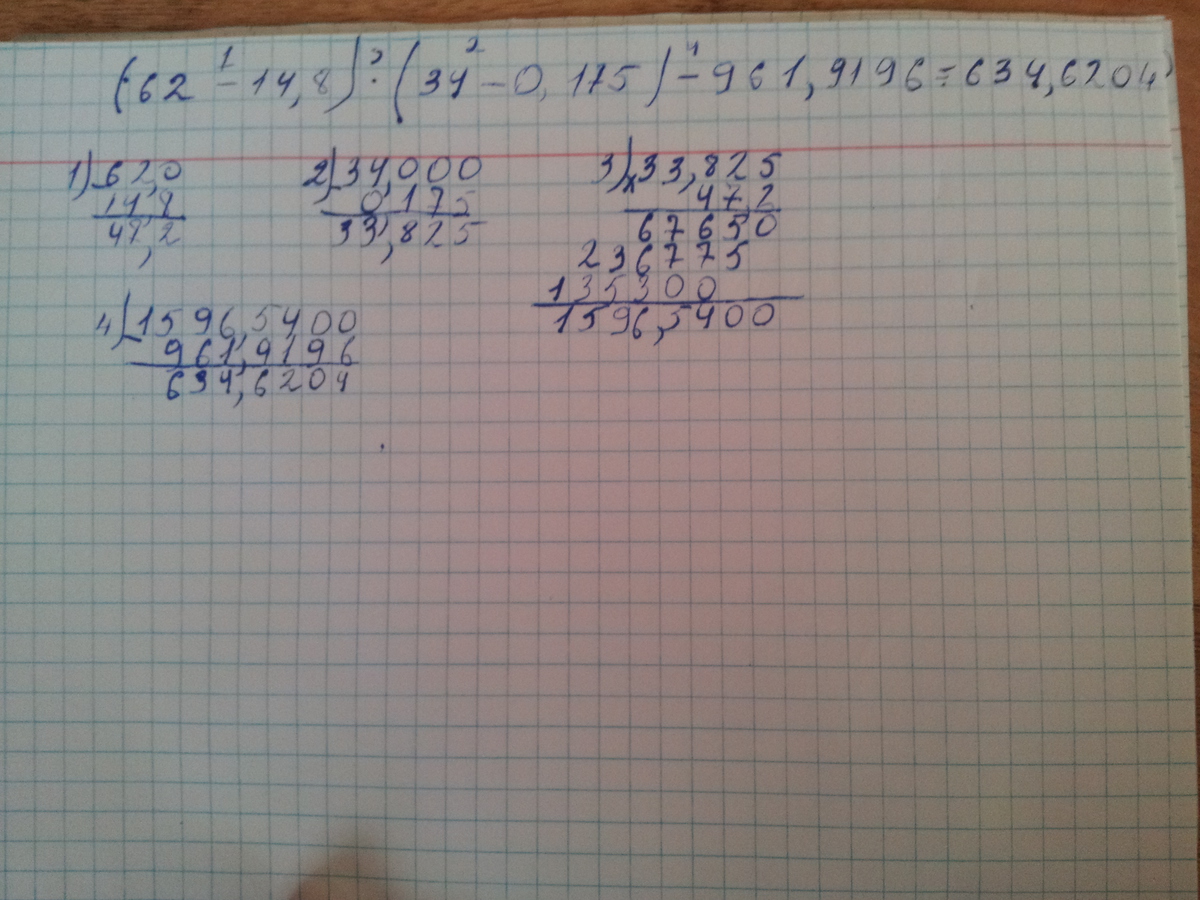 (62 - 14,8) · (34 - 0,175) - 961,9196 = 634,6204
1 3 2 4
1) 62,0
14,8
47,2
2) 34,000
0,175
33,825
3) x 33,825
47,2
67650
236775
135300
1596,5400
4) - 1596,5400
961,9196
634,6204